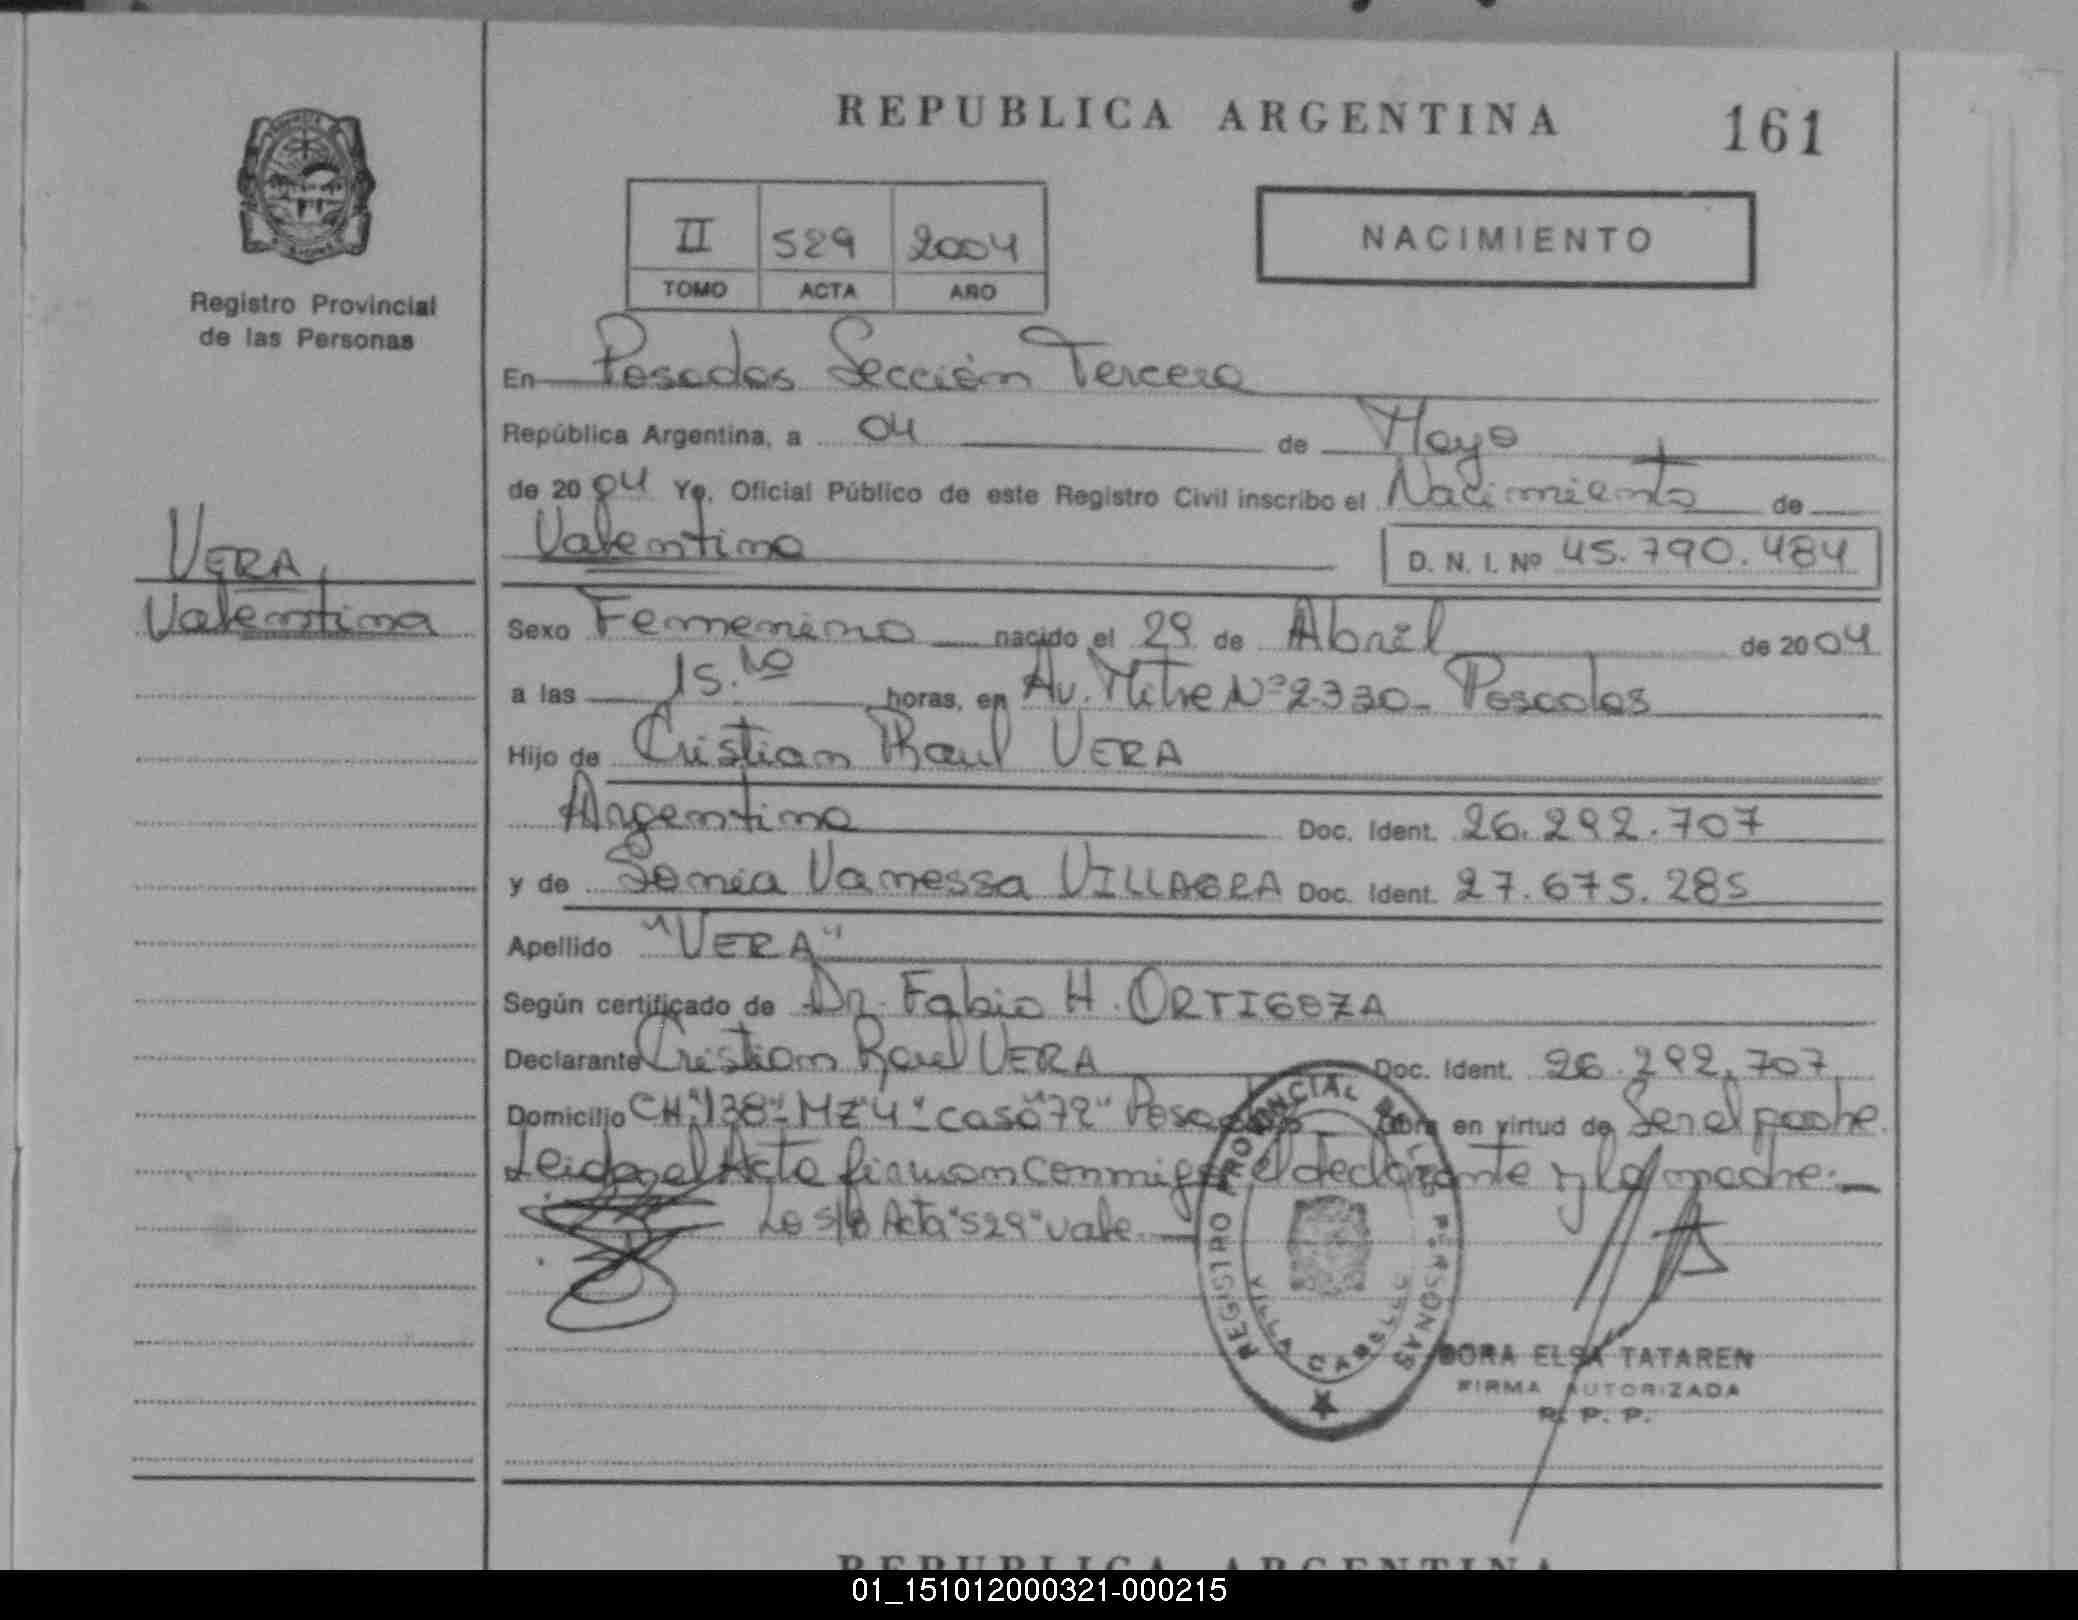 REPUBLICA ARGENTINA
161
II 529 2004
TOMO ACTA AÑO
NACIMIENTO
Registro Provincial
de las Personas
En Posadas Sección Tercera
República Argentina, a 04 de Mayo
de 2004 Yo, Oficial Público de este Registro Civil inscribo el Nacimiento de
Valentina D. N. I. Nº 45.790.484
VERA,
Valentina
Sexo Femenino nacido el 29 de Abril de 2004
a las 15.10 horas, en Av. Mitre Nº 2.330- Posadas
Hijo de Cristian Raul VERA
Argentina Doc. Ident. 26.292.707
y de Sonia Vanessa VILLAGRA Doc. Ident. 27.675.285
Apellido "VERA"
Según certificado de Dr. Fabio H. ORTIGOZA
Declarante Cristian Raul VERA Doc. Ident. 26.292.707
Domicilio CH"138"- MZ"4"- casa"72" Posadas Obra en virtud de Ser el padre.
Leida el Acta firman conmigo el declarante y la madre.-
Lo s/b Acta "529" vale.-
REGISTRO PROVINCIAL DE LAS PERSONAS
VILLA CABELLO
DORA ELSA TATAREN
FIRMA AUTORIZADA
R. P. P.
REPUBLICA ARGENTINA
01_151012000321-000215